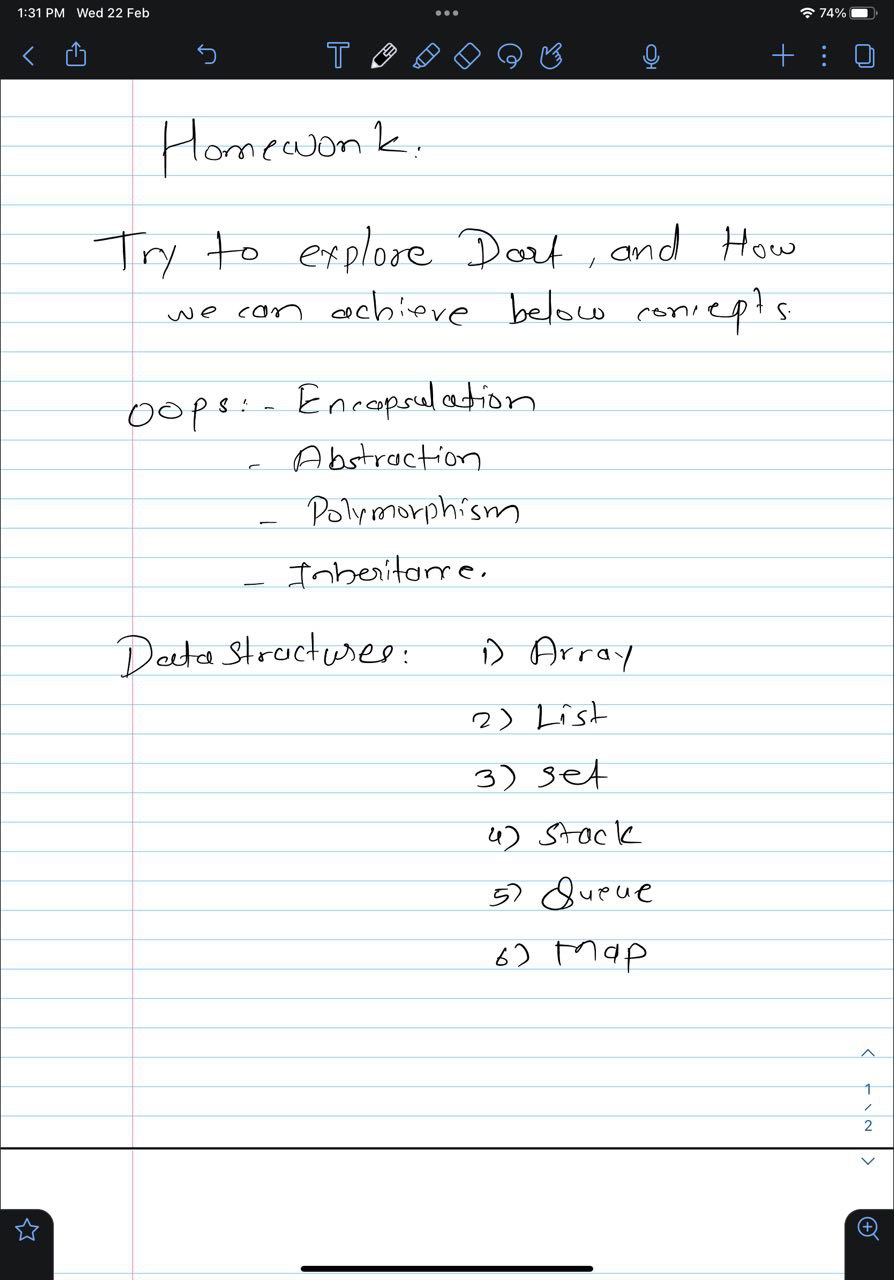 1:31 PM Wed 22 Feb
74%
T
Homework.
Try to explore Dart, and How
we can achieve below concepts.
OOPs:- Encapsulation
- Abstraction
- Polymorphism
- Inheritance.
Data Structures: 1) Array
2) List
3) Set
4) Stack
5) Queue
6) Map
1
/
2